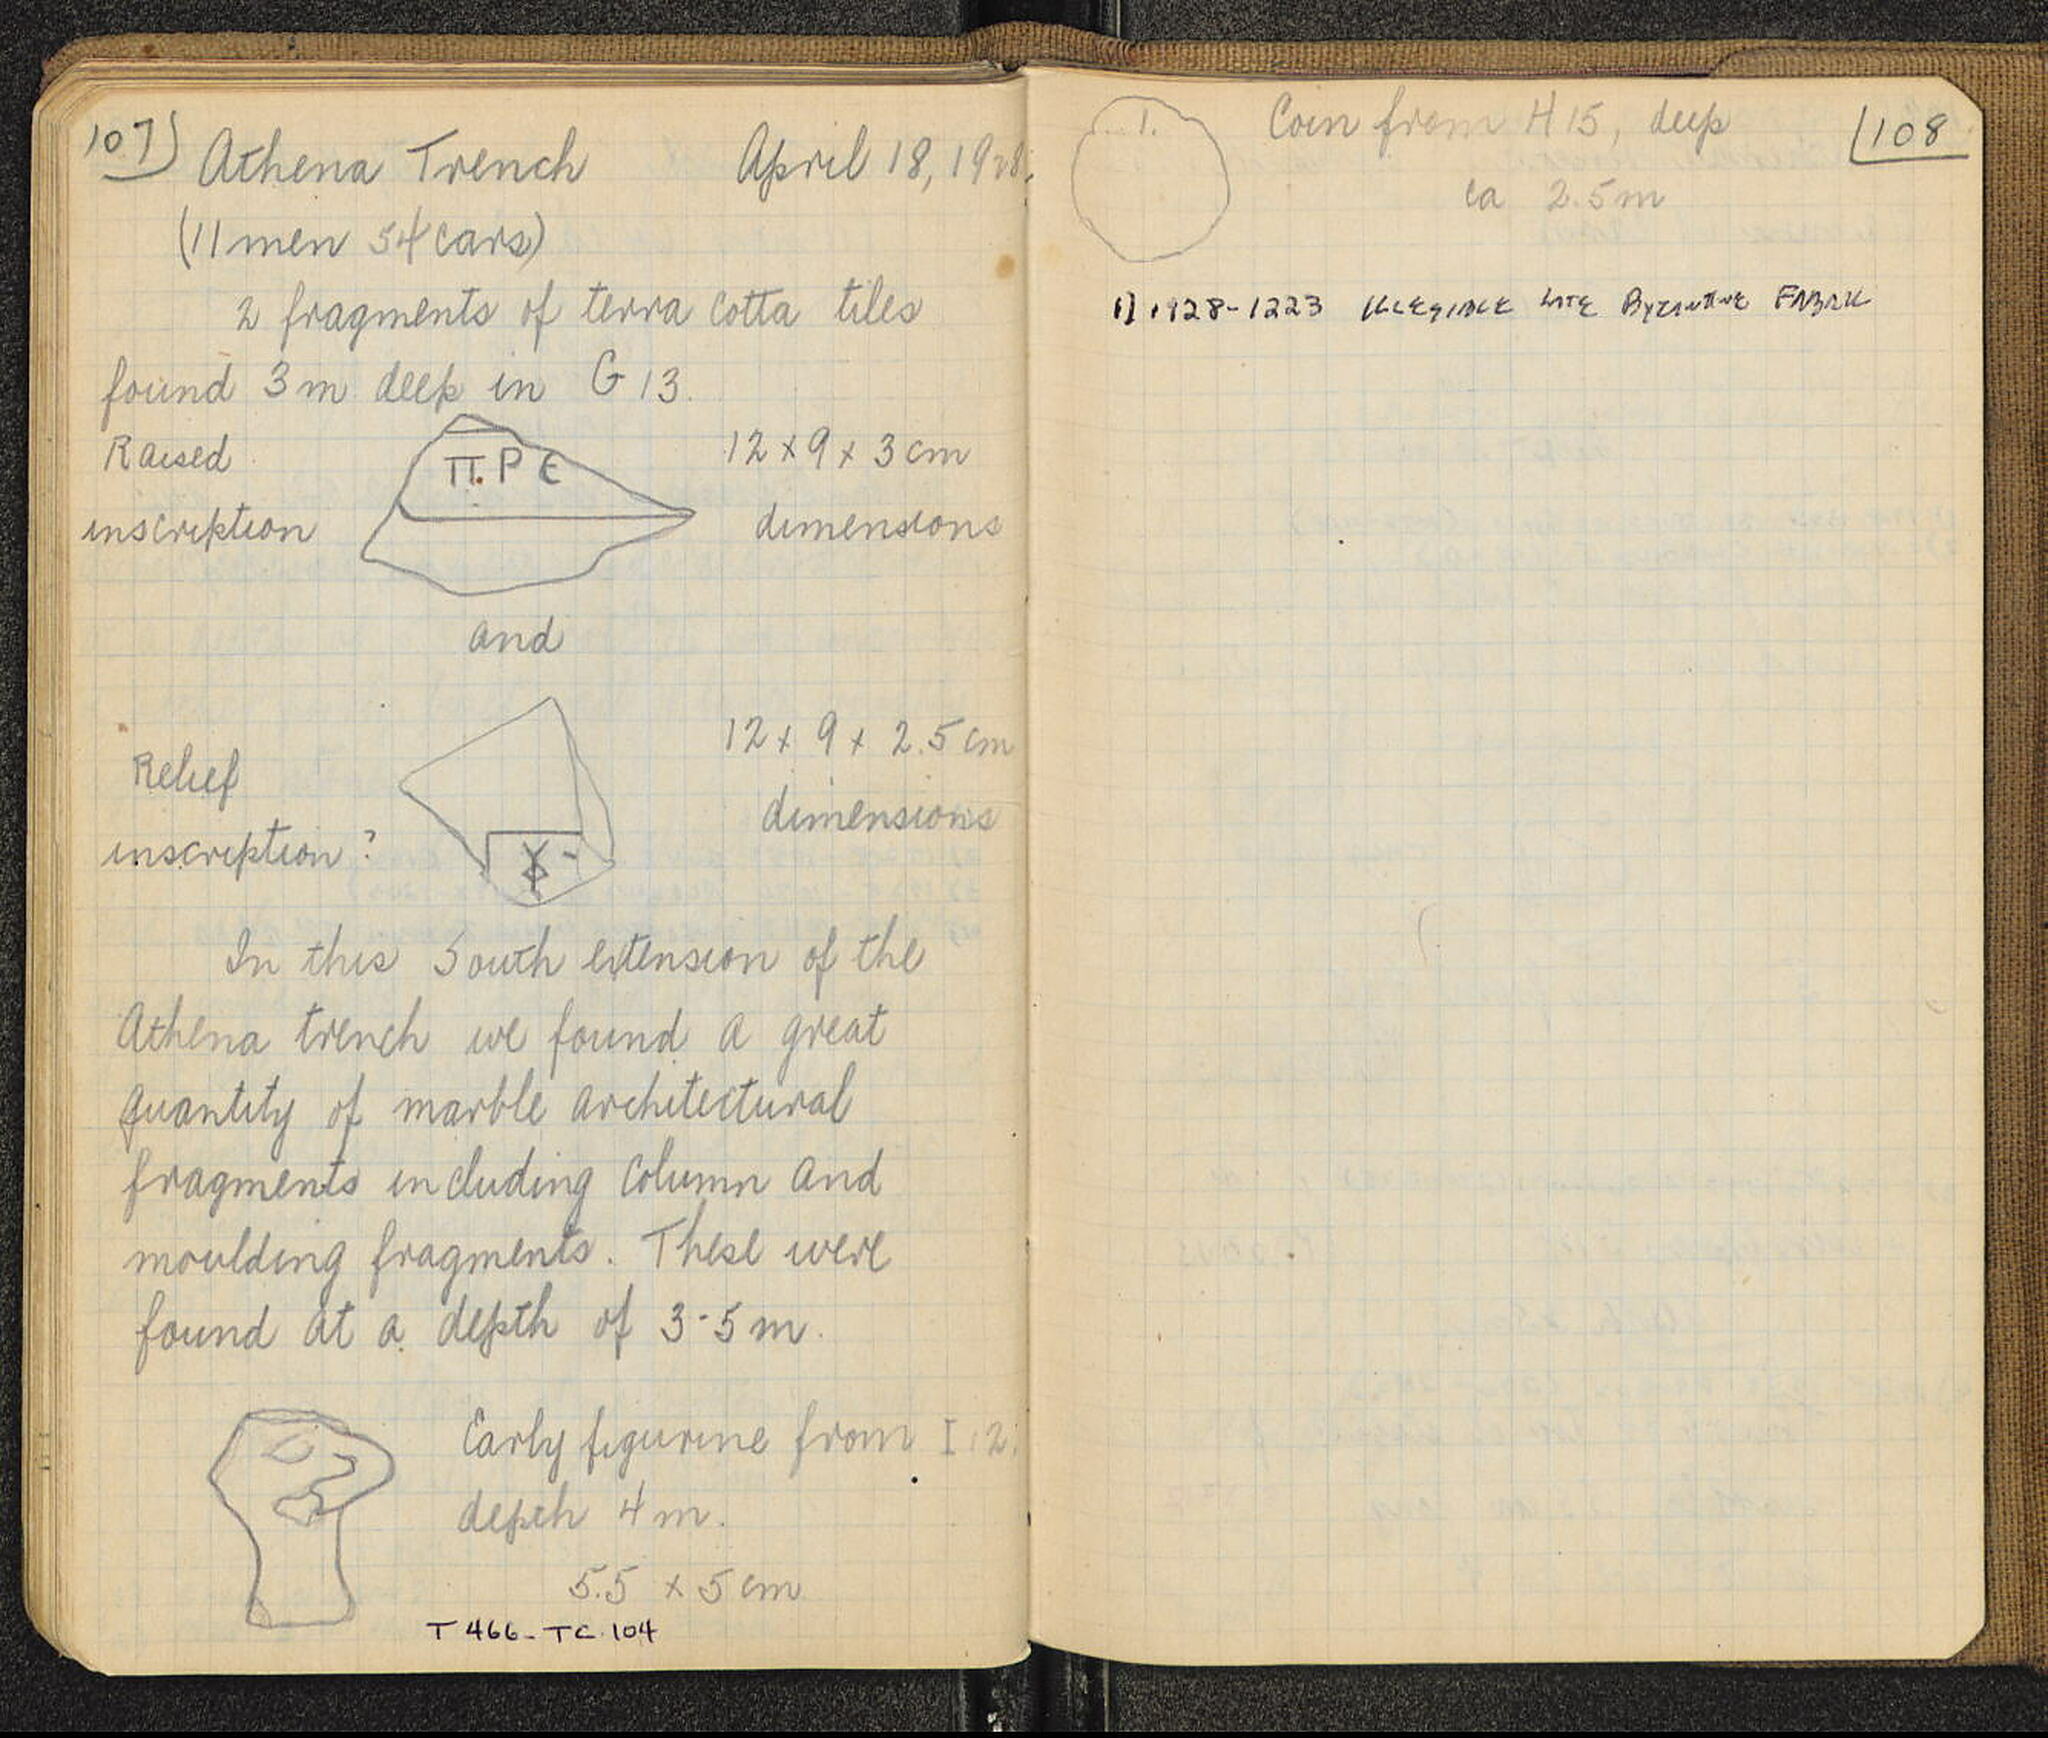 107)
Athena Trench April 18, 1928.
(11 men 54 cars)
2 fragments of terra cotta tiles
found 3 m deep in G 13.
Raised
inscription
Π.Ρ Є
12 x 9 x 3 cm
dimensions
and
Relief
inscription?
12 x 9 x 2.5 cm
dimensions
In this South extension of the
Athena trench we found a great
quantity of marble architectural
fragments including column and
moulding fragments. These were
found at a depth of 3-5 m.
Early figurine from I 12.
depth 4 m.
5.5 x 5 cm
T 466 - TC.104
108
1.
Coin from H 15, deep
ca 2.5 m
1) 1928-1223 ILLEGIBLE LATE BYZANTINE FABRIC